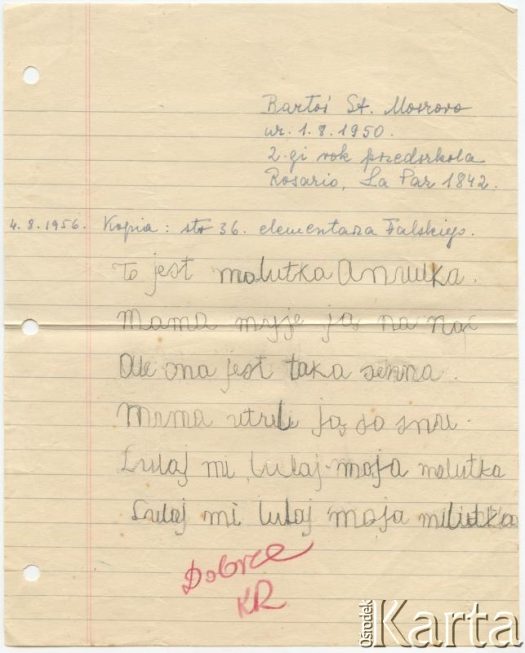 Bartoś St. Mosrovo
ur. 1.8.1950.
2-gi rok przedszkola
Rosario, La Paz 1842.
4.8.1956. Kopia: str 36. elementarza Falskiego.
To jest malutka Anulka.
Mama myje ją na noc
Ale ona jest taka senna.
Mama utuli ją do snu.
Lulaj mi, lulaj moja malutka
Lulaj mi lulaj moja malutka
Dobrze
KR
Ośrodek
Karta